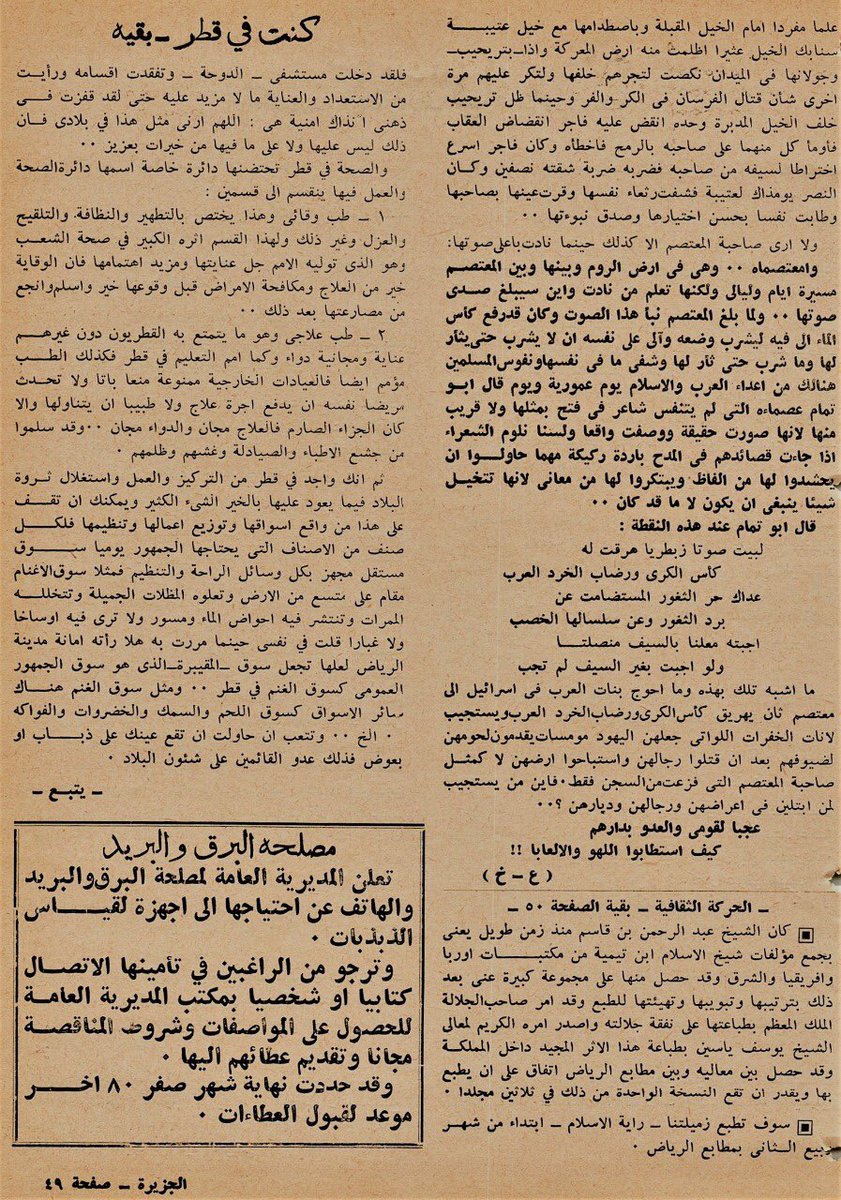 علما مفردا امام الخيل المقبلة وباصطدامها مع خيل عتيبة
سنابك الخيل عثيرا اظلمت منه ارض المعركة واذا بتريحيب
وجولانها فى الميدان نكصت لتجرهم خلفها ولتكر عليهم مرة
اخرى شأن قتال الفرسان فى الكر والفر وحينما ظل تريحيب
خلف الخيل المدبرة وحده انقض عليه فاجر انقضاض العقاب
فأوما كل منهما على صاحبه بالرمح فاخطاه وكان فاجر اسرع
اختراطا لسيفه من صاحبه فضربه ضربة شقته نصفين وكان
النصر يومذاك لعتيبة فشفت رثعاء نفسها وقرت عينها بصاحبها
وطابت نفسا بحسن اختيارها وصدق نبوءتها ٠٠
ولا ارى صاحبة المعتصم الا كذلك حينما نادت باعلى صوتها :
وامعتصماه ٠٠ وهى فى ارض الروم وبينها وبين المعتصم
مسيرة ايام وليالى ولكنها تعلم من نادت واين سيبلغ صدى
صوتها ٠٠ ولما بلغ المعتصم نبأ هذا الصوت وكان قد رفع كأس
الماء الى فيه ليشرب وضعه وآلى على نفسه ان لا يشرب حتى يثأر
لها وما شرب حتى ثار لها وشفى ما فى نفسها ونفوس المسلمين
هنالك من اعداء العرب والاسلام يوم عمورية ويوم قال ابو
تمام عصماءه التى لم يتنفس شاعر فى فتح بمثلها ولا قريب
منها لانها صورت حقيقة ووصفت واقعا ولسنا نلوم الشعراء
اذا جاءت قصائدهم فى المدح باردة ركيكة مهما حاولوا ان
يحشدوا لها من الفاظ ويبتكروا لها من معانى لانها تتخيل
شيئا ينبغى ان يكون لا ما قد كان ٠٠
قال ابو تمام عند هذه النقطة :
لبيت صوتا زبطريا هرقت له
كأس الكرى ورضاب الخرد العرب
عداك حر الثغور المستضامت عن
برد الثغور وعن سلسالها الخصب
اجبته معلنا بالسيف منصلتا
ولو اجبت بغير السيف لم تجب
ما اشبه تلك بهذه وما احوج بنات العرب فى اسرائيل الى
معتصم ثان يهريق كأس الكرى ورضاب الخرد العرب ويستجيب
لانات الخفرات اللواتى جعلهن اليهود مومسات يقدمون لحومهن
لضيوفهم بعد ان قتلوا رجالهن واستباحوا ارضهن لا كمثل
صاحبة المعتصم التى فزعت من السجن فقط ٠ فاين من يستجيب
لمن ابتلين فى اعراضهن ورجالهن وديارهن ؟ ٠٠
عجبا لقومى والعدو بدارهم
كيف استطابوا اللهو والالعابا !!
( ع – خ )
ـ الحركة الثقافية ـ بقية الصفحة ٥٠ ـ
كان الشيخ عبد الرحمن بن قاسم منذ زمن طويل يعنى
بجمع مؤلفات شيخ الاسلام ابن تيمية من مكتبات اوربا
وافريقيا والشرق وقد حصل منها على مجموعة كبيرة عنى بعد
ذلك بترتيبها وتبويبها وتهيئتها للطبع وقد امر صاحب الجلالة
الملك المعظم بطباعتها على نفقة جلالته واصدر امره الكريم لمعالى
الشيخ يوسف ياسين بطباعة هذا الاثر المجيد داخل المملكة
وقد حصل بين معاليه وبين مطابع الرياض اتفاق على ان يطبع
بها ويقدر ان تقع النسخة الواحدة من ذلك فى ثلاثين مجلدا ٠
سوف تطبع زميلتنا ـ راية الاسلام ـ ابتداء من شهر
ربيع الثانى بمطابع الرياض ٠
كنت في قطر ـ بقيه
فلقد دخلت مستشفى ـ الدوحة ـ وتفقدت اقسامه ورأيت
من الاستعداد والعناية ما لا مزيد عليه حتى لقد قفزت فى
ذهنى انذاك امنية هى : اللهم ارنى مثل هذا في بلادى فان
ذلك ليس عليها ولا على ما فيها من خيرات بعزيز ٠٠
والصحة في قطر تحتضنها دائرة خاصة اسمها دائرة الصحة
والعمل فيها ينقسم الى قسمين :
١ ـ طب وقائى وهذا يختص بالتطهير والنظافة والتلقيح
والعزل وغير ذلك ولهذا القسم اثره الكبير في صحة الشعب
وهو الذى توليه الامم جل عنايتها ومزيد اهتمامها فان الوقاية
خير من العلاج ومكافحة الامراض قبل وقوعها خير واسلم وانجع
من مصارعتها بعد ذلك ٠٠
٢ ـ طب علاجى وهو ما يتمتع به القطريون دون غيرهم
عناية ومجانية دواء وكما امم التعليم في قطر فكذلك الطب
مؤمم ايضا فالعيادات الخارجية ممنوعة منعا باتا ولا تحدث
مريضا نفسه ان يدفع اجرة علاج ولا طبيبا ان يتناولها والا
كان الجزاء الصارم فالعلاج مجان والدواء مجان ٠٠ وقد سلموا
من جشع الاطباء والصيادلة وغشهم وظلمهم ٠
ثم انك واجد في قطر من التركيز والعمل واستغلال ثروة
البلاد فيما يعود عليها بالخير الشىء الكثير ويمكنك ان تقف
على هذا من واقع اسواقها وتوزيع اعمالها وتنظيمها فلكل
صنف من الاصناف التى يحتاجها الجمهور يوميا سوق
مستقل مجهز بكل وسائل الراحة والتنظيم فمثلا سوق الاغنام
مقام على متسع من الارض وتعلوه المظلات الجميلة وتتخلله
الممرات وتنتشر فيه احواض الماء ومسور ولا ترى فيه اوساخا
ولا غبارا قلت في نفسى حينما مررت به هلا رأته امانة مدينة
الرياض لعلها تجعل سوق ـ المقيبرة ـ الذى هو سوق الجمهور
العمومى كسوق الغنم في قطر ٠٠ ومثل سوق الغنم هناك
سائر الاسواق كسوق اللحم والسمك والخضروات والفواكه
٠ الخ ٠٠ وتتعب ان حاولت ان تقع عينك على ذباب او
بعوض فذلك عدو القائمين على شئون البلاد ٠
ـ يتبع ـ
مصلحه البرق والبريد
تعلن المديرية العامة لمصلحة البرق والبريد
والهاتف عن احتياجها الى اجهزة لقياس
الذبذبات ٠
وترجو من الراغبين في تأمينها الاتصال
كتابيا او شخصيا بمكتب المديرية العامة
للحصول على المواصفات وشروط المناقصة
مجانا وتقديم عطائهم اليها ٠
وقد حددت نهاية شهر صفر ٨٠ اخر
موعد لقبول العطاءات ٠
الجزيرة ـ صفحة ٤٩